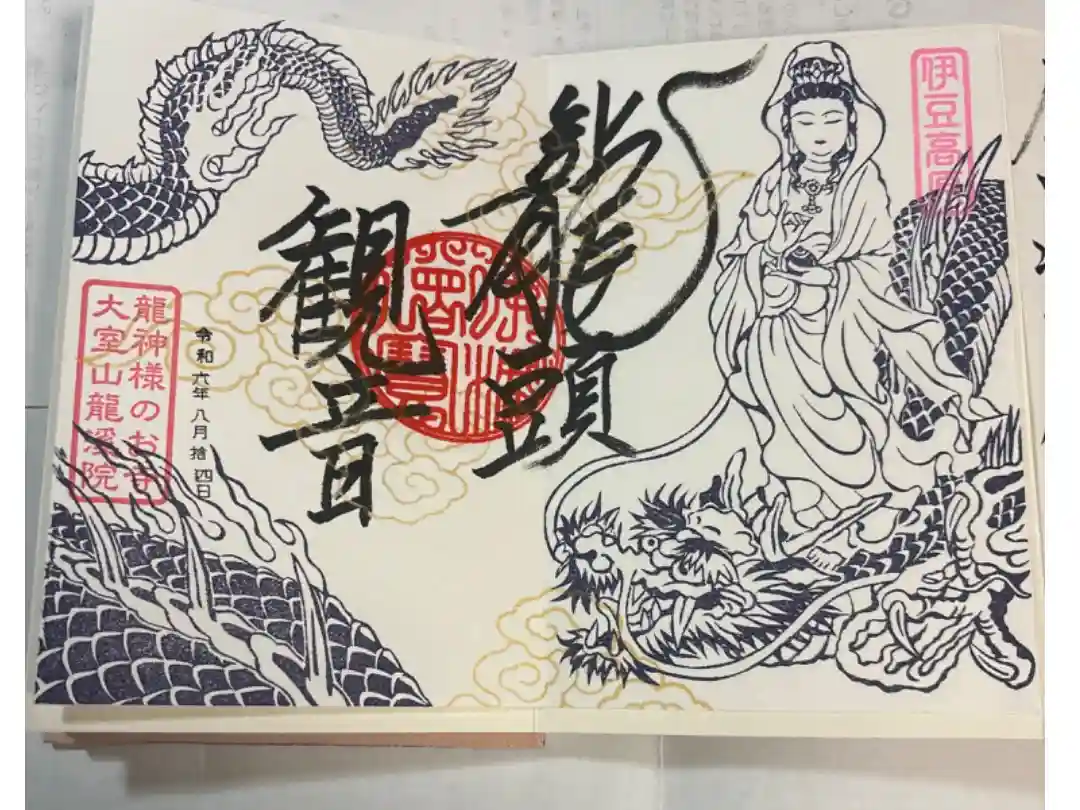 伊豆高原
龍頭
観音
令和六年八月拾四日
龍神様のお寺
大室山龍溪院